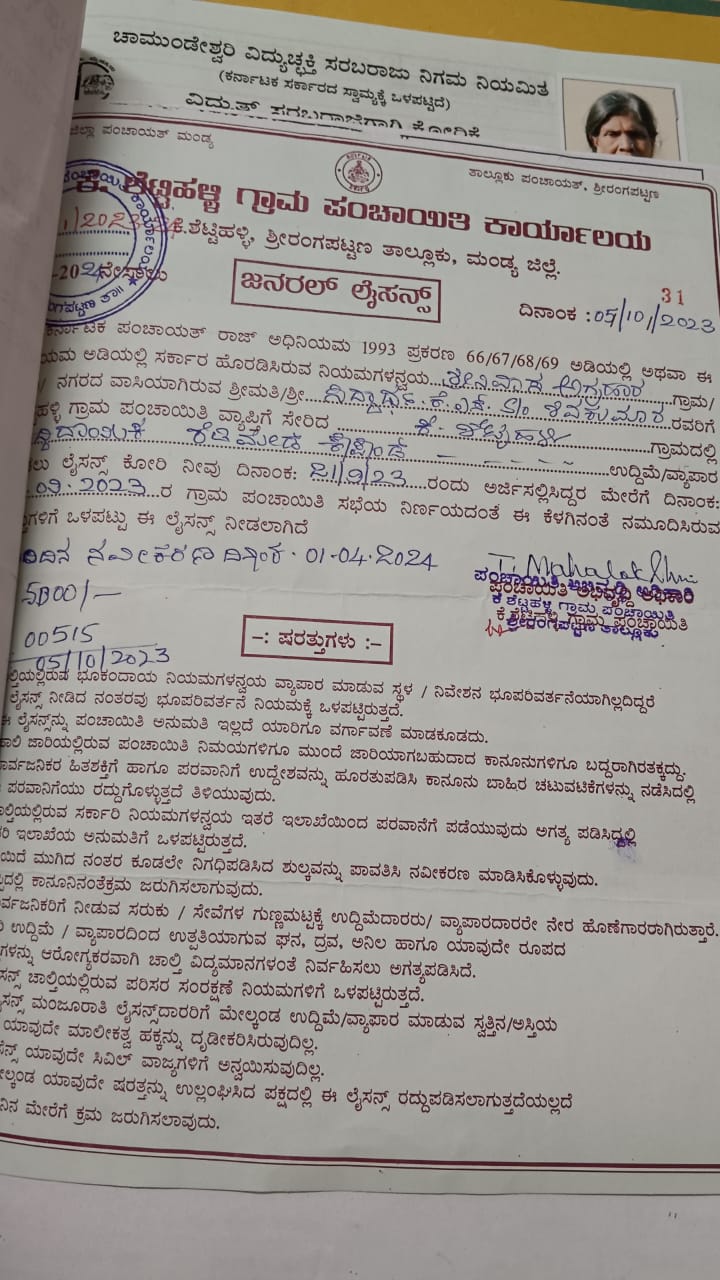 ಚಾಮುಂಡೇಶ್ವರಿ ವಿದ್ಯುಚ್ಛಕ್ತಿ ಸರಬರಾಜು ನಿಗಮ ನಿಯಮಿತ
(ಕರ್ನಾಟಕ ಸರ್ಕಾರದ ಸ್ವಾಮ್ಯಕ್ಕೆ ಒಳಪಟ್ಟಿದೆ)
ಜಿಲ್ಲಾ ಪಂಚಾಯತ್ ಮಂಡ್ಯ
ತಾಲ್ಲೂಕು ಪಂಚಾಯತ್, ಶ್ರೀರಂಗಪಟ್ಟಣ
ಕೆ. ಶೆಟ್ಟಿಹಳ್ಳಿ ಗ್ರಾಮ ಪಂಚಾಯಿತಿ ಕಾರ್ಯಾಲಯ
ಕೆ.ಶೆಟ್ಟಿಹಳ್ಳಿ, ಶ್ರೀರಂಗಪಟ್ಟಣ ತಾಲ್ಲೂಕು, ಮಂಡ್ಯ ಜಿಲ್ಲೆ.
31
ಜನರಲ್ ಲೈಸನ್ಸ್
ದಿನಾಂಕ : 05/10/2023
ಕರ್ನಾಟಕ ಪಂಚಾಯತ್ ರಾಜ್ ಅಧಿನಿಯಮ 1993 ಪ್ರಕರಣ 66/67/68/69 ಅಡಿಯಲ್ಲಿ ಅಥವಾ ಈ
ಯಮ ಅಡಿಯಲ್ಲಿ ಸರ್ಕಾರ ಹೊರಡಿಸಿರುವ ನಿಯಮಗಳನ್ವಯ ಅಗ್ರಹಾರ ಗ್ರಾಮ/
/ ನಗರದ ವಾಸಿಯಾಗಿರುವ ಶ್ರೀಮತಿ/ಶ್ರೀ ಕೆ.ಎಸ್. S/o ಶಿವಕುಮಾರ ರವರಿಗೆ
ಹಳ್ಳಿ ಗ್ರಾಮ ಪಂಚಾಯಿತಿ ವ್ಯಾಪ್ತಿಗೆ ಸೇರಿದ ಕೆ ಶೆಟ್ಟಿಹಳ್ಳಿ ಗ್ರಾಮದಲ್ಲಿ
ಉದ್ದಿಮೆ/ವ್ಯಾಪಾರ
ಲು ಲೈಸನ್ಸ್ ಕೋರಿ ನೀವು ದಿನಾಂಕ: 21/9/23 ರಂದು ಅರ್ಜಿಸಲ್ಲಿಸಿದ್ದರ ಮೇರೆಗೆ ದಿನಾಂಕ:
.09.2023 ರ ಗ್ರಾಮ ಪಂಚಾಯಿತಿ ಸಭೆಯ ನಿರ್ಣಯದಂತೆ ಈ ಕೆಳಗಿನಂತೆ ನಮೂದಿಸಿರುವ
ಗಳಿಗೆ ಒಳಪಟ್ಟು ಈ ಲೈಸನ್ಸ್ ನೀಡಲಾಗಿದೆ
ನವೀಕರಣ ದಿನಾಂಕ. 01-04-2024
5000/-
00515
05/10/2023
ಪಂಚಾಯಿತಿ ಅಭಿವೃದ್ಧಿ ಅಧಿಕಾರಿ
ಕೆ ಶೆಟ್ಟಿಹಳ್ಳಿ ಗ್ರಾಮ ಪಂಚಾಯಿತಿ
ಶ್ರೀರಂಗಪಟ್ಟಣ ತಾಲ್ಲೂಕು
-: ಷರತ್ತುಗಳು :-
ಲ್ತಿಯಲ್ಲಿರುವ ಭೂಕಂದಾಯ ನಿಯಮಗಳನ್ವಯ ವ್ಯಾಪಾರ ಮಾಡುವ ಸ್ಥಳ / ನಿವೇಶನ ಭೂಪರಿವರ್ತನೆಯಾಗಿಲ್ಲದಿದ್ದರೆ
ಲೈಸನ್ಸ್ ನೀಡಿದ ನಂತರವು ಭೂಪರಿವರ್ತನೆ ನಿಯಮಕ್ಕೆ ಒಳಪಟ್ಟಿರುತ್ತದೆ.
ಈ ಲೈಸನ್ಸ್‌ನ್ನು ಪಂಚಾಯಿತಿ ಅನುಮತಿ ಇಲ್ಲದೆ ಯಾರಿಗೂ ವರ್ಗಾವಣೆ ಮಾಡಕೂಡದು.
ಹಾಲಿ ಜಾರಿಯಲ್ಲಿರುವ ಪಂಚಾಯಿತಿ ನಿಮಯಗಳಿಗೂ ಮುಂದೆ ಜಾರಿಯಾಗಬಹುದಾದ ಕಾನೂನುಗಳಿಗೂ ಬದ್ದರಾಗಿರತಕ್ಕದ್ದು.
ಾರ್ವಜನಿಕರ ಹಿತಶಕ್ತಿಗೆ ಹಾಗೂ ಪರವಾನಿಗೆ ಉದ್ದೇಶವನ್ನು ಹೂರತುಪಡಿಸಿ ಕಾನೂನು ಬಾಹಿರ ಚಟುವಟಿಕೆಗಳನ್ನು ನಡೆಸಿದಲ್ಲಿ
ಪರವಾನಿಗೆಯು ರದ್ದುಗೊಳ್ಳುತ್ತದೆ ತಿಳಿಯುವುದು.
ಾಲ್ತಿಯಲ್ಲಿರುವ ಸರ್ಕಾರಿ ನಿಯಮಗಳನ್ವಯ ಇತರೆ ಇಲಾಖೆಯಿಂದ ಪರವಾನೆಗೆ ಪಡೆಯುವುದು ಅಗತ್ಯ ಪಡಿಸಿದ್ದಲ್ಲಿ
ರಿ ಇಲಾಖೆಯ ಅನುಮತಿಗೆ ಒಳಪಟ್ಟಿರುತ್ತದೆ.
ಯಿದೆ ಮುಗಿದ ನಂತರ ಕೂಡಲೇ ನಿಗಧಿಪಡಿಸಿದ ಶುಲ್ಕವನ್ನು ಪಾವತಿಸಿ ನವೀಕರಣ ಮಾಡಿಸಿಕೊಳ್ಳುವುದು.
ದಲ್ಲಿ ಕಾನೂನಿನಂತೆಕ್ರಮ ಜರುಗಿಸಲಾಗುವುದು.
ರ್ವಜನಿಕರಿಗೆ ನೀಡುವ ಸರುಕು / ಸೇವೆಗಳ ಗುಣಮಟ್ಟಕ್ಕೆ ಉದ್ದಿಮೆದಾರರು/ ವ್ಯಾಪಾರದಾರರೇ ನೇರ ಹೊಣೆಗಾರರಾಗಿರುತ್ತಾರೆ.
ರಿ ಉದ್ದಿಮೆ / ವ್ಯಾಪಾರದಿಂದ ಉತ್ಪತಿಯಾಗುವ ಘನ, ದ್ರವ, ಅನಿಲ ಹಾಗೂ ಯಾವುದೇ ರೂಪದ
ಗಳನ್ನು ಆರೋಗ್ಯಕರವಾಗಿ ಚಾಲ್ತಿ ವಿದ್ಯಮಾನಗಳಂತೆ ನಿರ್ವಹಿಸಲು ಅಗತ್ಯಪಡಿಸಿದೆ.
ಸನ್ಸ್ ಚಾಲ್ತಿಯಲ್ಲಿರುವ ಪರಿಸರ ಸಂರಕ್ಷಣೆ ನಿಯಮಗಳಿಗೆ ಒಳಪಟ್ಟಿರುತ್ತದೆ.
ಸನ್ಸ್ ಮಂಜೂರಾತಿ ಲೈಸನ್ಸ್‌ದಾರರಿಗೆ ಮೇಲ್ಕಂಡ ಉದ್ದಿಮೆ/ವ್ಯಾಪಾರ ಮಾಡುವ ಸ್ವತ್ತಿನ/ಅಸ್ತಿಯ
ಯಾವುದೇ ಮಾಲೀಕತ್ವ ಹಕ್ಕನ್ನು ದೃಡೀಕರಿಸಿರುವುದಿಲ್ಲ.
ಸೆನ್ಸ್ ಯಾವುದೇ ಸಿವಿಲ್ ವಾಜ್ಯಗಳಿಗೆ ಅನ್ವಯಿಸುವುದಿಲ್ಲ.
ೇಲ್ಕಂಡ ಯಾವುದೇ ಷರತ್ತನ್ನು ಉಲ್ಲಂಘಿಸಿದ ಪಕ್ಷದಲ್ಲಿ ಈ ಲೈಸನ್ಸ್ ರದ್ದುಪಡಿಸಲಾಗುತ್ತದೆಯಲ್ಲದೆ
ನಿನ ಮೇರೆಗೆ ಕ್ರಮ ಜರುಗಿಸಲಾವುದು.